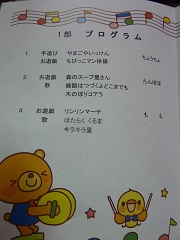 1部 プログラム
1. 手遊び やまごやいっけん ちょうちょ
お遊戯 ちびっこマン体操
2. お遊戯 森のスープ屋さん たんぽぽ
歌 線路はつづくよどこまでも
木のぼりコアラ
3. お遊戯 リンリンマーチ もも
歌 はたらくくるま
キラキラ星